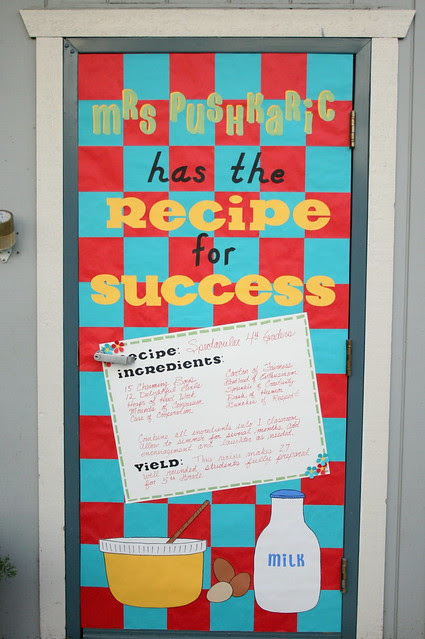 mRS PUSHKARiC
has the
Recipe
for
success
Recipe: Spectacular 4th Graders
ingredients:
15 Charming Boys
12 Delightful Girls
Hours of Hard Work
Mounds of Compassion
Case of Cooperation
Carton of Fairness
Handful of Enthusiasm
Sprinkle of Creativity
Dash of Humor
Bunches of Respect
Combine all ingredients into 1 classroom,
allow to simmer for several months, add
encouragement and laughter as needed.
Yield: This recipe makes 27
well rounded students fully prepared
for 5th Grade
MiLK